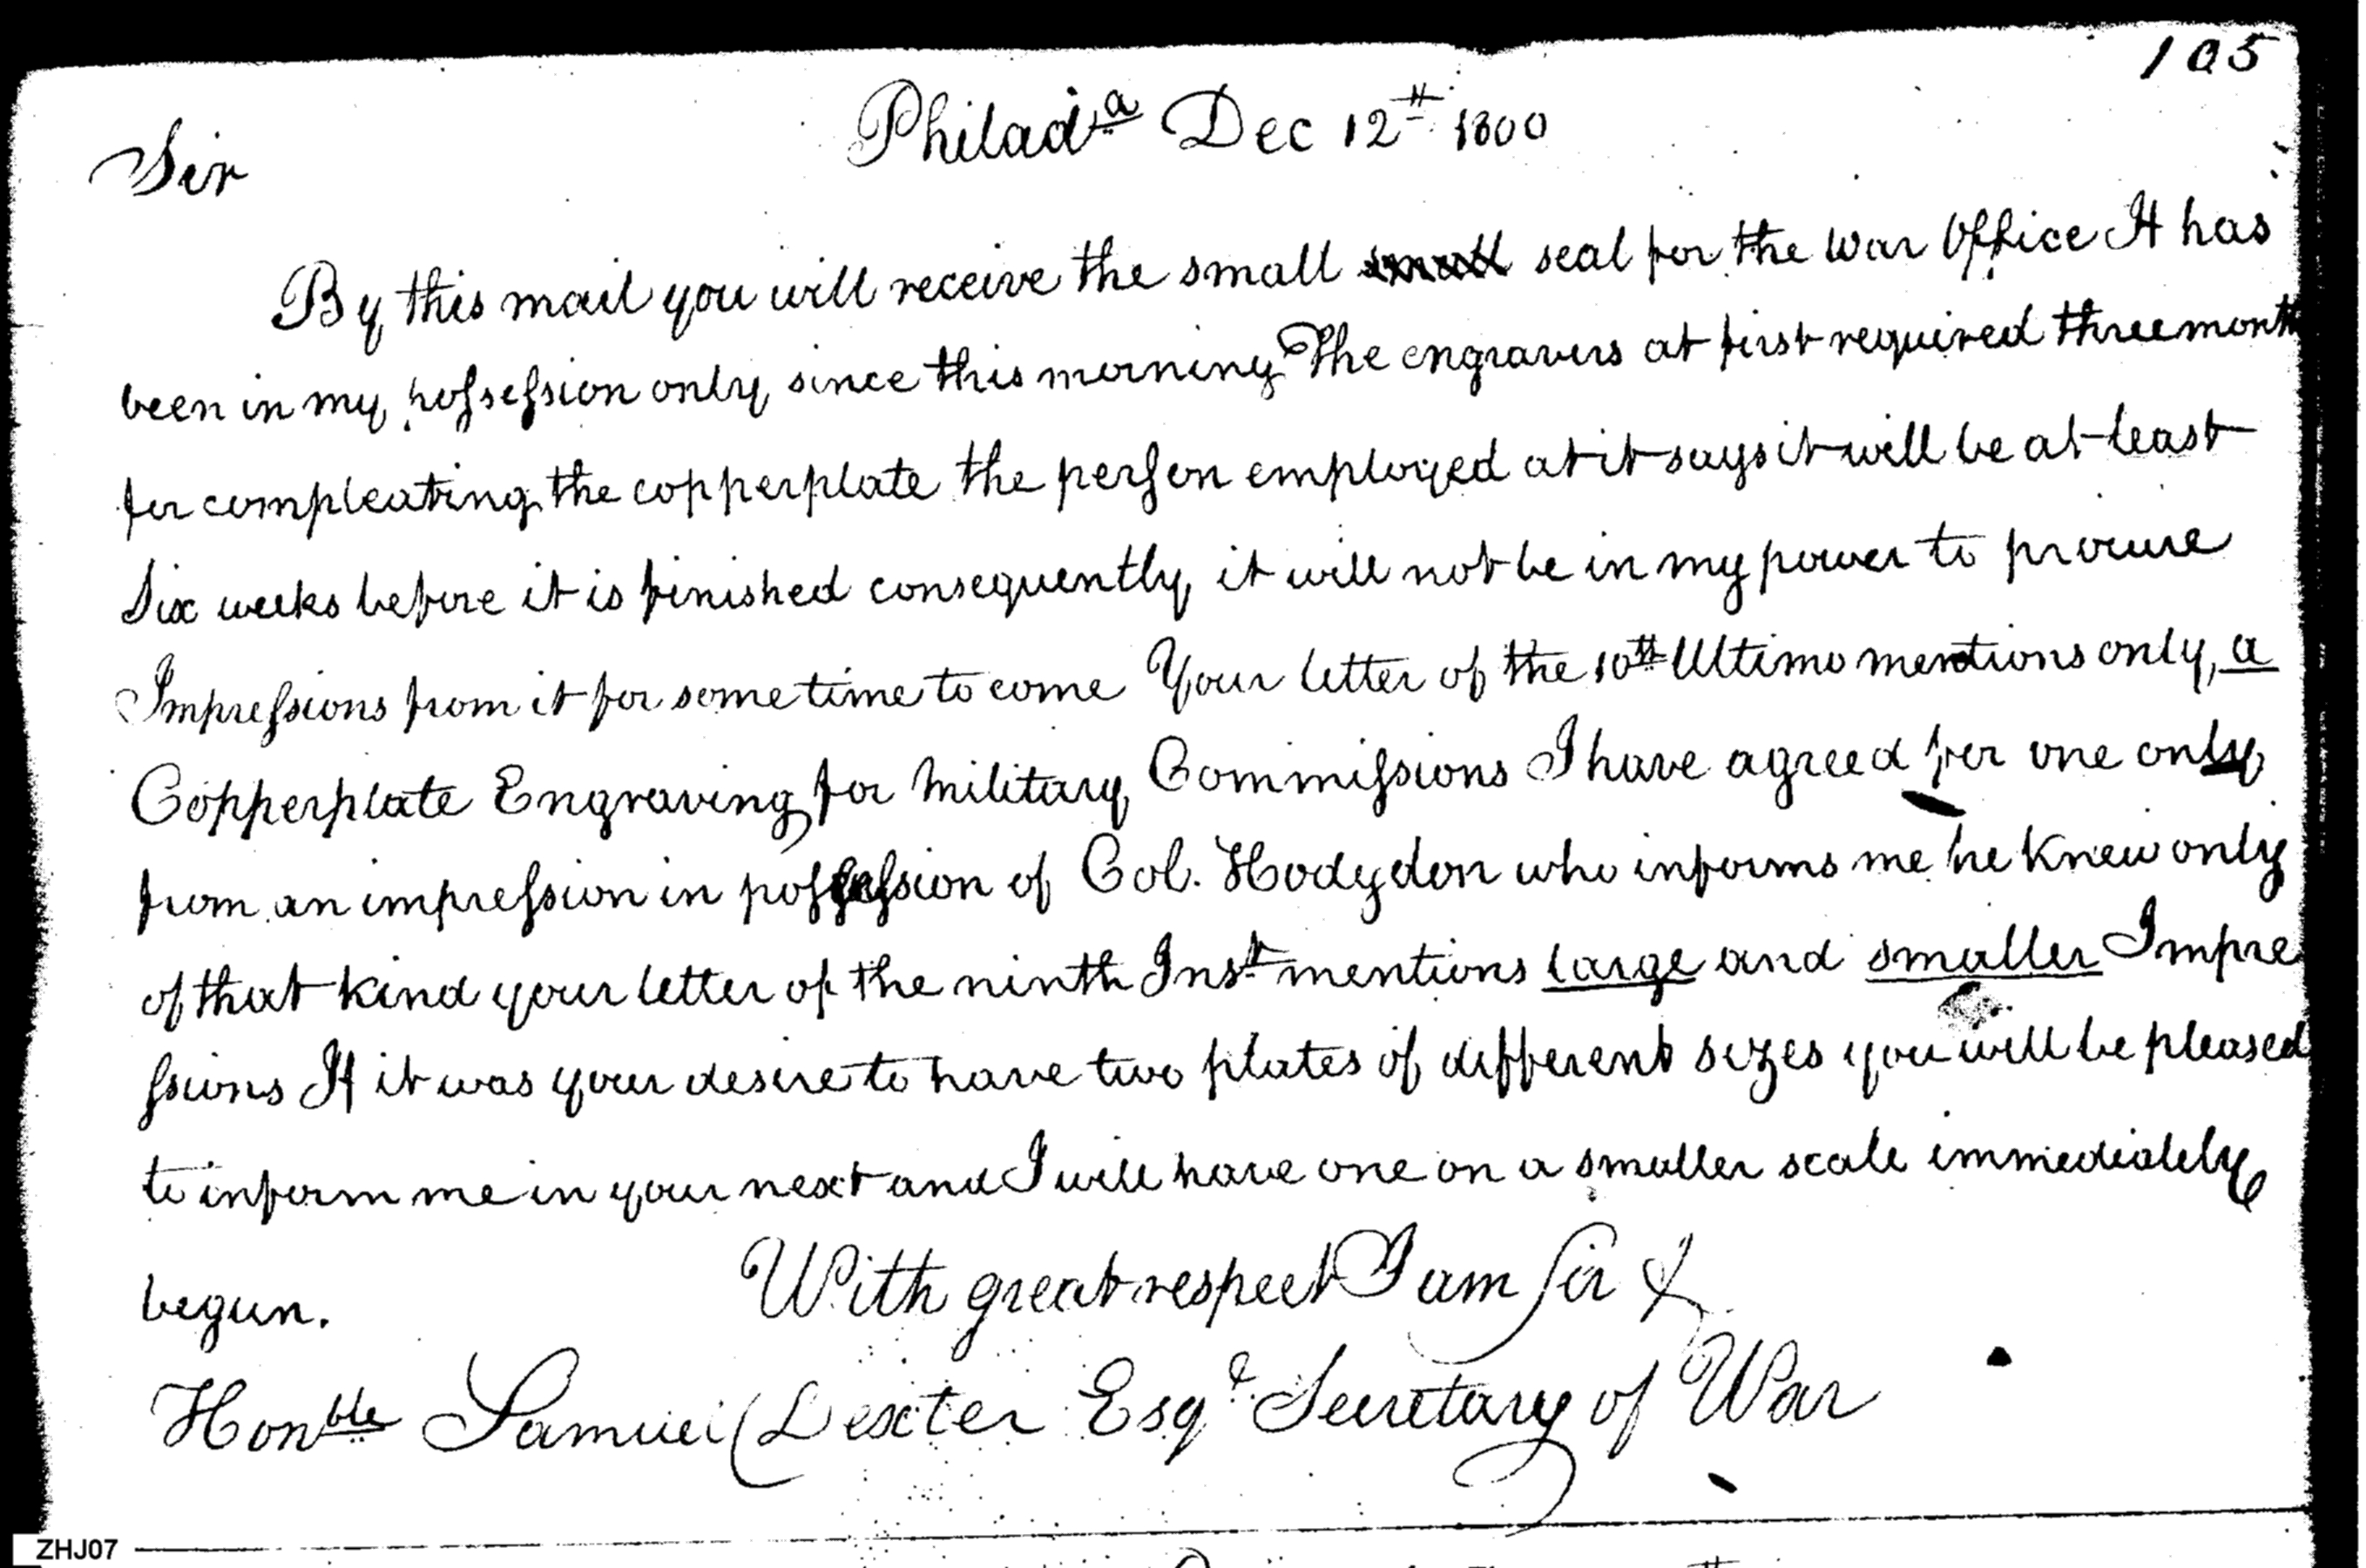 105
Philad.a Dec 12th 1800
Sir
By this mail you will receive the small small seal for the War Office It has
been in my possession only since this morning The engravers at first required three month
for compleating the copperplate the person employed at it says it will be at least
Six weeks before it is finished consequently it will not be in my power to procure
Impressions from it for some time to come Your letter of the 10th Ultimo mentions only, a
Copperplate Engraving for Military Commissions I have agreed for one only
from an impression in possession of Col. Hodgdon who informs me he knew only
of that kind your letter of the ninth Inst mentions large and smaller Impre
ssions If it was your desire to have two plates of different sizes you will be pleased
to inform me in your next and I will have one on a smaller scale immediately
begun.
With great respect I am Sir &
Honble Samuel Dexter Esqr Secretary of War
ZHJ07